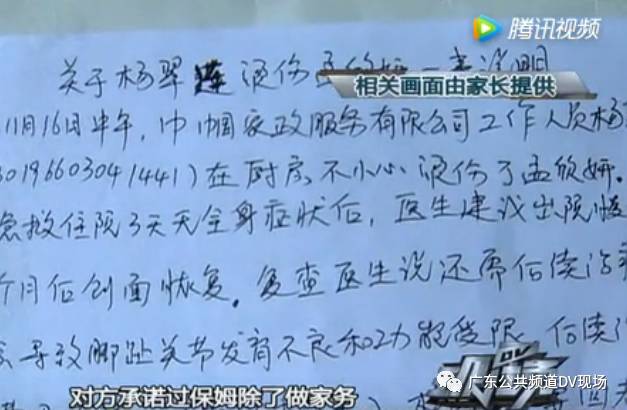 腾讯视频
关于杨翠莲烫伤
相关画面由家长提供
11月16日中午，巾帼家政服务有限公司工作人员杨
30196603041441）在厨房不小心烫伤了孟欣妍。
急救住院3天无全身症状后，医生建议出院恢
个月后创面恢复。复查医生说还需后续治
导致脚趾关节发育不良和功能受限 后续
对方承诺过保姆除了做家务
广东公共频道DV现场